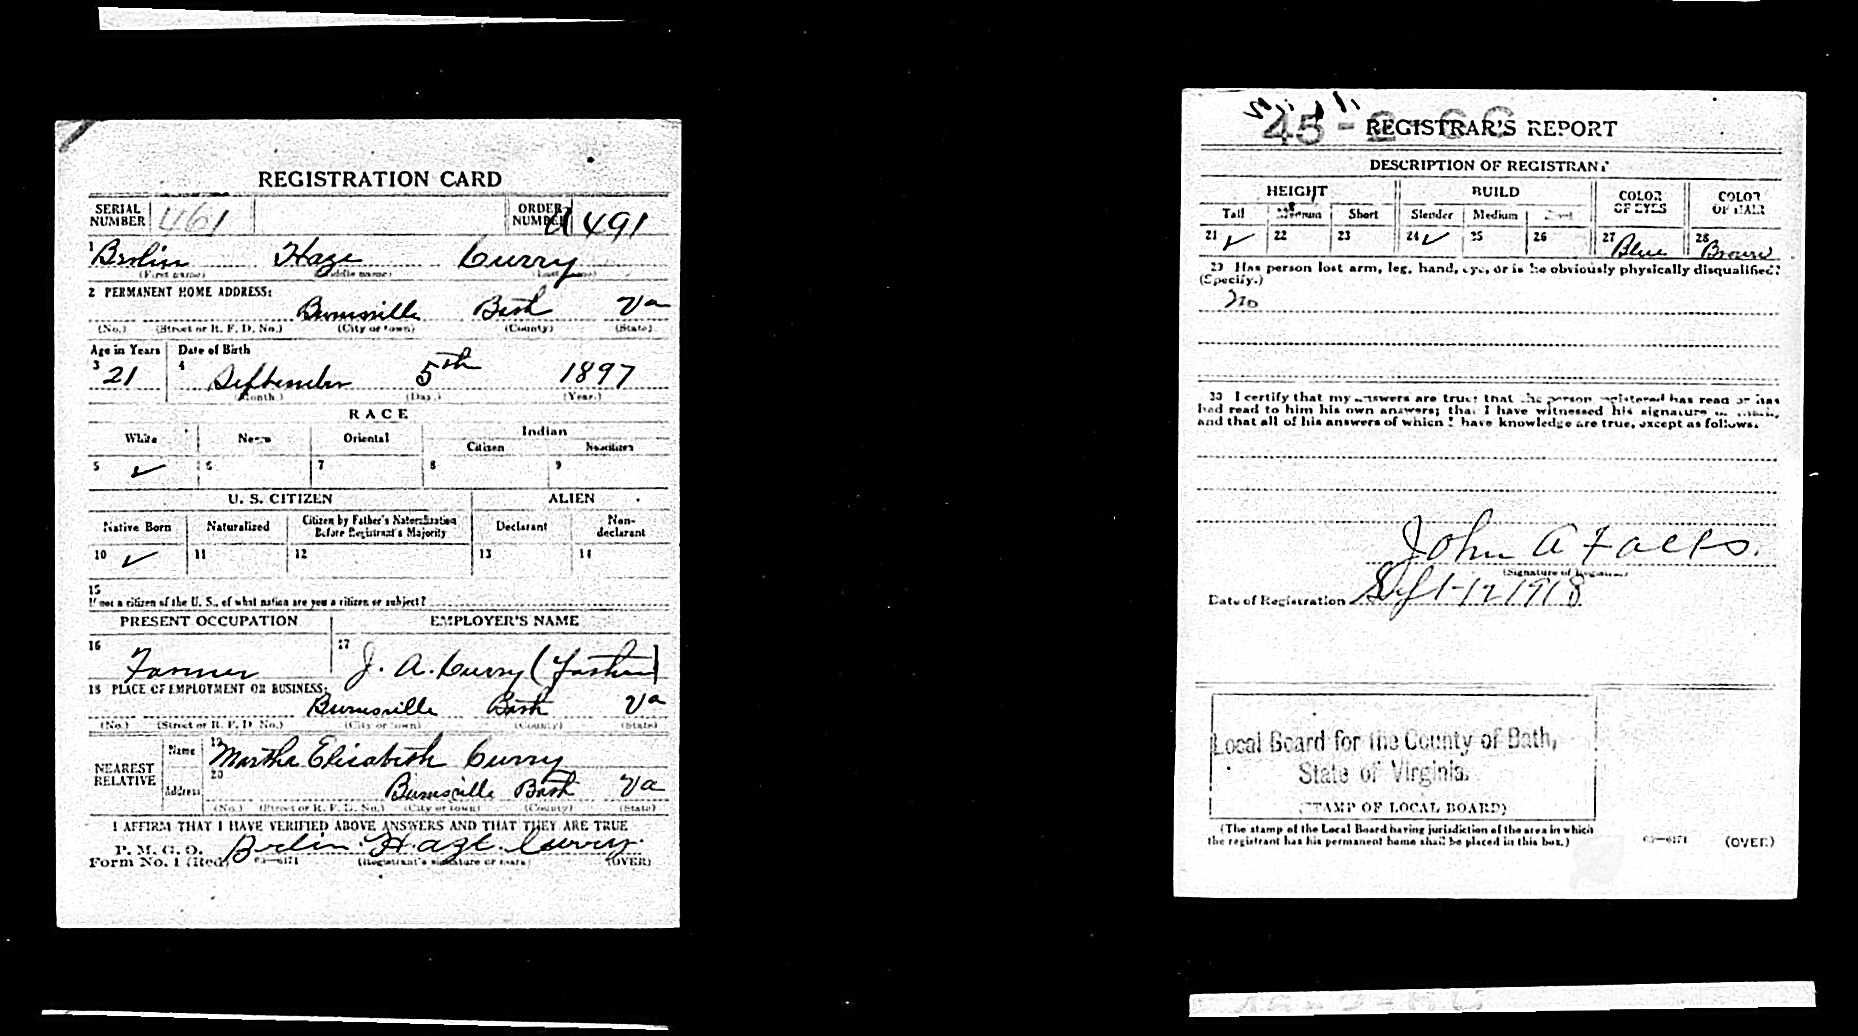 REGISTRATION CARD
SERIAL NUMBER 461 ORDER NUMBER A 491
1 Berlin Haze Curry
(First name) (Middle name) (Last name)
2 PERMANENT HOME ADDRESS:
Burnsville Bath Va
(No.) (Street or R. F. D. No.) (City or town) (County) (State)
Age in Years Date of Birth
3 21 4 September 5th 1897
(Month.) (Day.) (Year.)
RACE
White Negro Oriental Indian
Citizen Noncitizen
5 ✓ 6 7 8 9
U. S. CITIZEN ALIEN
Native Born Naturalized Citizen by Father's Naturalization Before Registrant's Majority Declarant Non-declarant
10 ✓ 11 12 13 14
15
If not a citizen of the U. S., of what nation are you a citizen or subject?
PRESENT OCCUPATION EMPLOYER'S NAME
16 Farmer 17 J. A. Curry (Father)
18 PLACE OF EMPLOYMENT OR BUSINESS:
Burnsville Bath Va
(No.) (Street or R. F. D. No.) (City or town) (County) (State)
NEAREST RELATIVE Name 19 Martha Elisabeth Curry
Address 20 Burnsville Bath Va
(No.) (Street or R. F. D. No.) (City or town) (County) (State)
I AFFIRM THAT I HAVE VERIFIED ABOVE ANSWERS AND THAT THEY ARE TRUE
P. M. G. O.
Form No. 1 (Red) 03—6171 Berlin Haze Curry
(Registrant's signature or mark) (OVER)
REGISTRAR'S REPORT
45-2-
DESCRIPTION OF REGISTRANT
HEIGHT BUILD COLOR OF EYES COLOR OF HAIR
Tall Medium Short Slender Medium Stout
21 ✓ 22 23 24 ✓ 25 26 27 Blue 28 Brown
29 Has person lost arm, leg, hand, eye, or is he obviously physically disqualified?
(Specify.)
No
30 I certify that my answers are true; that the person registered has read or has
had read to him his own answers; that I have witnessed his signature or mark,
and that all of his answers of which I have knowledge are true, except as follows:
John A
(Signature of Registrar)
Date of Registration Sept-12 1918
Local Board for the County of Bath,
State of Virginia.
(STAMP OF LOCAL BOARD)
(The stamp of the Local Board having jurisdiction of the area in which
the registrant has his permanent home shall be placed in this box.)
03—6171 (OVER)